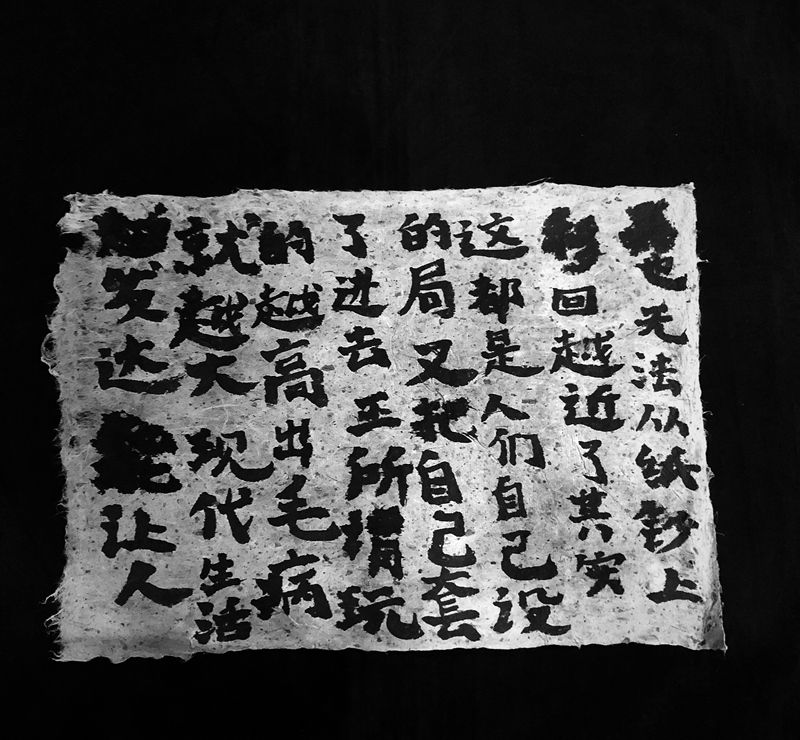 也无法从纸钞上
回越近了其实
这都是人们自己设
的局又把自己套
了进去正所谓玩
的越高出毛病
就越大现代生活
发达让人